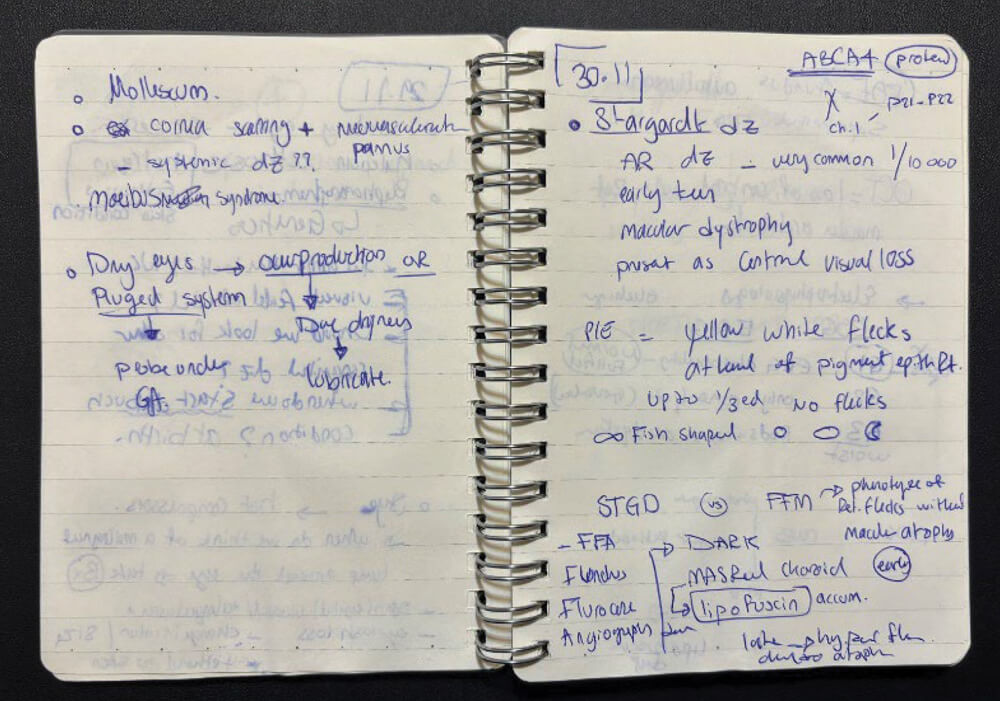 Molluscum.
cornea scarring + neovascularization
pannus
- systemic dz ??
Moebius syndrome.
Dry eyes → overproduction OR
Pluged system
Due dryness
probe under
lubricate.
GA.
30.11
ABCA4 protein
ch.1 p21-p22
Stargardt dz
AR dz - very common 1/10 000
early teen
macular dystrophy
present as central visual loss
P/E = yellow white flecks
at level of pigment epith Rt.
up to 1/3ed No flecks
Fish shaped
STGD vs FFM → phenotype of
Ret. flecks without
macular atrophy
- FFA → DARK
Fundus MASKed choroid early
Flurocine lipofuscin accum.
Angiography
late hyper
atroph